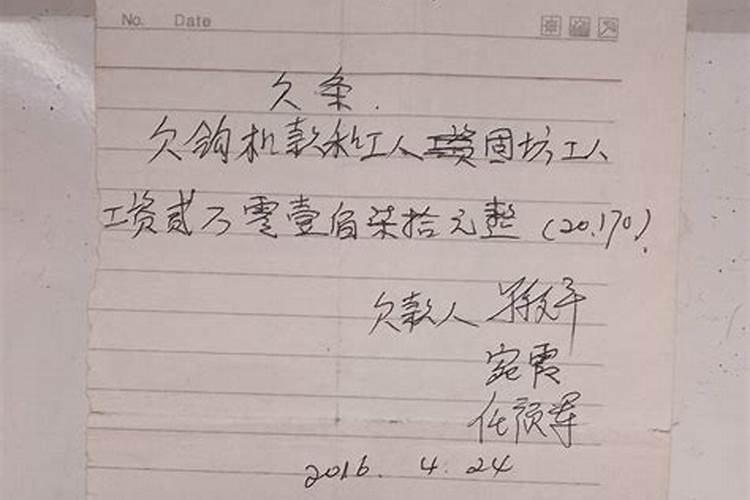 No. Date
欠条.
欠钩机款和工人工资固坊工人
工资贰万零壹佰柒拾元整 (20.170)
欠款人
宛霞
任领军
2016. 4. 24